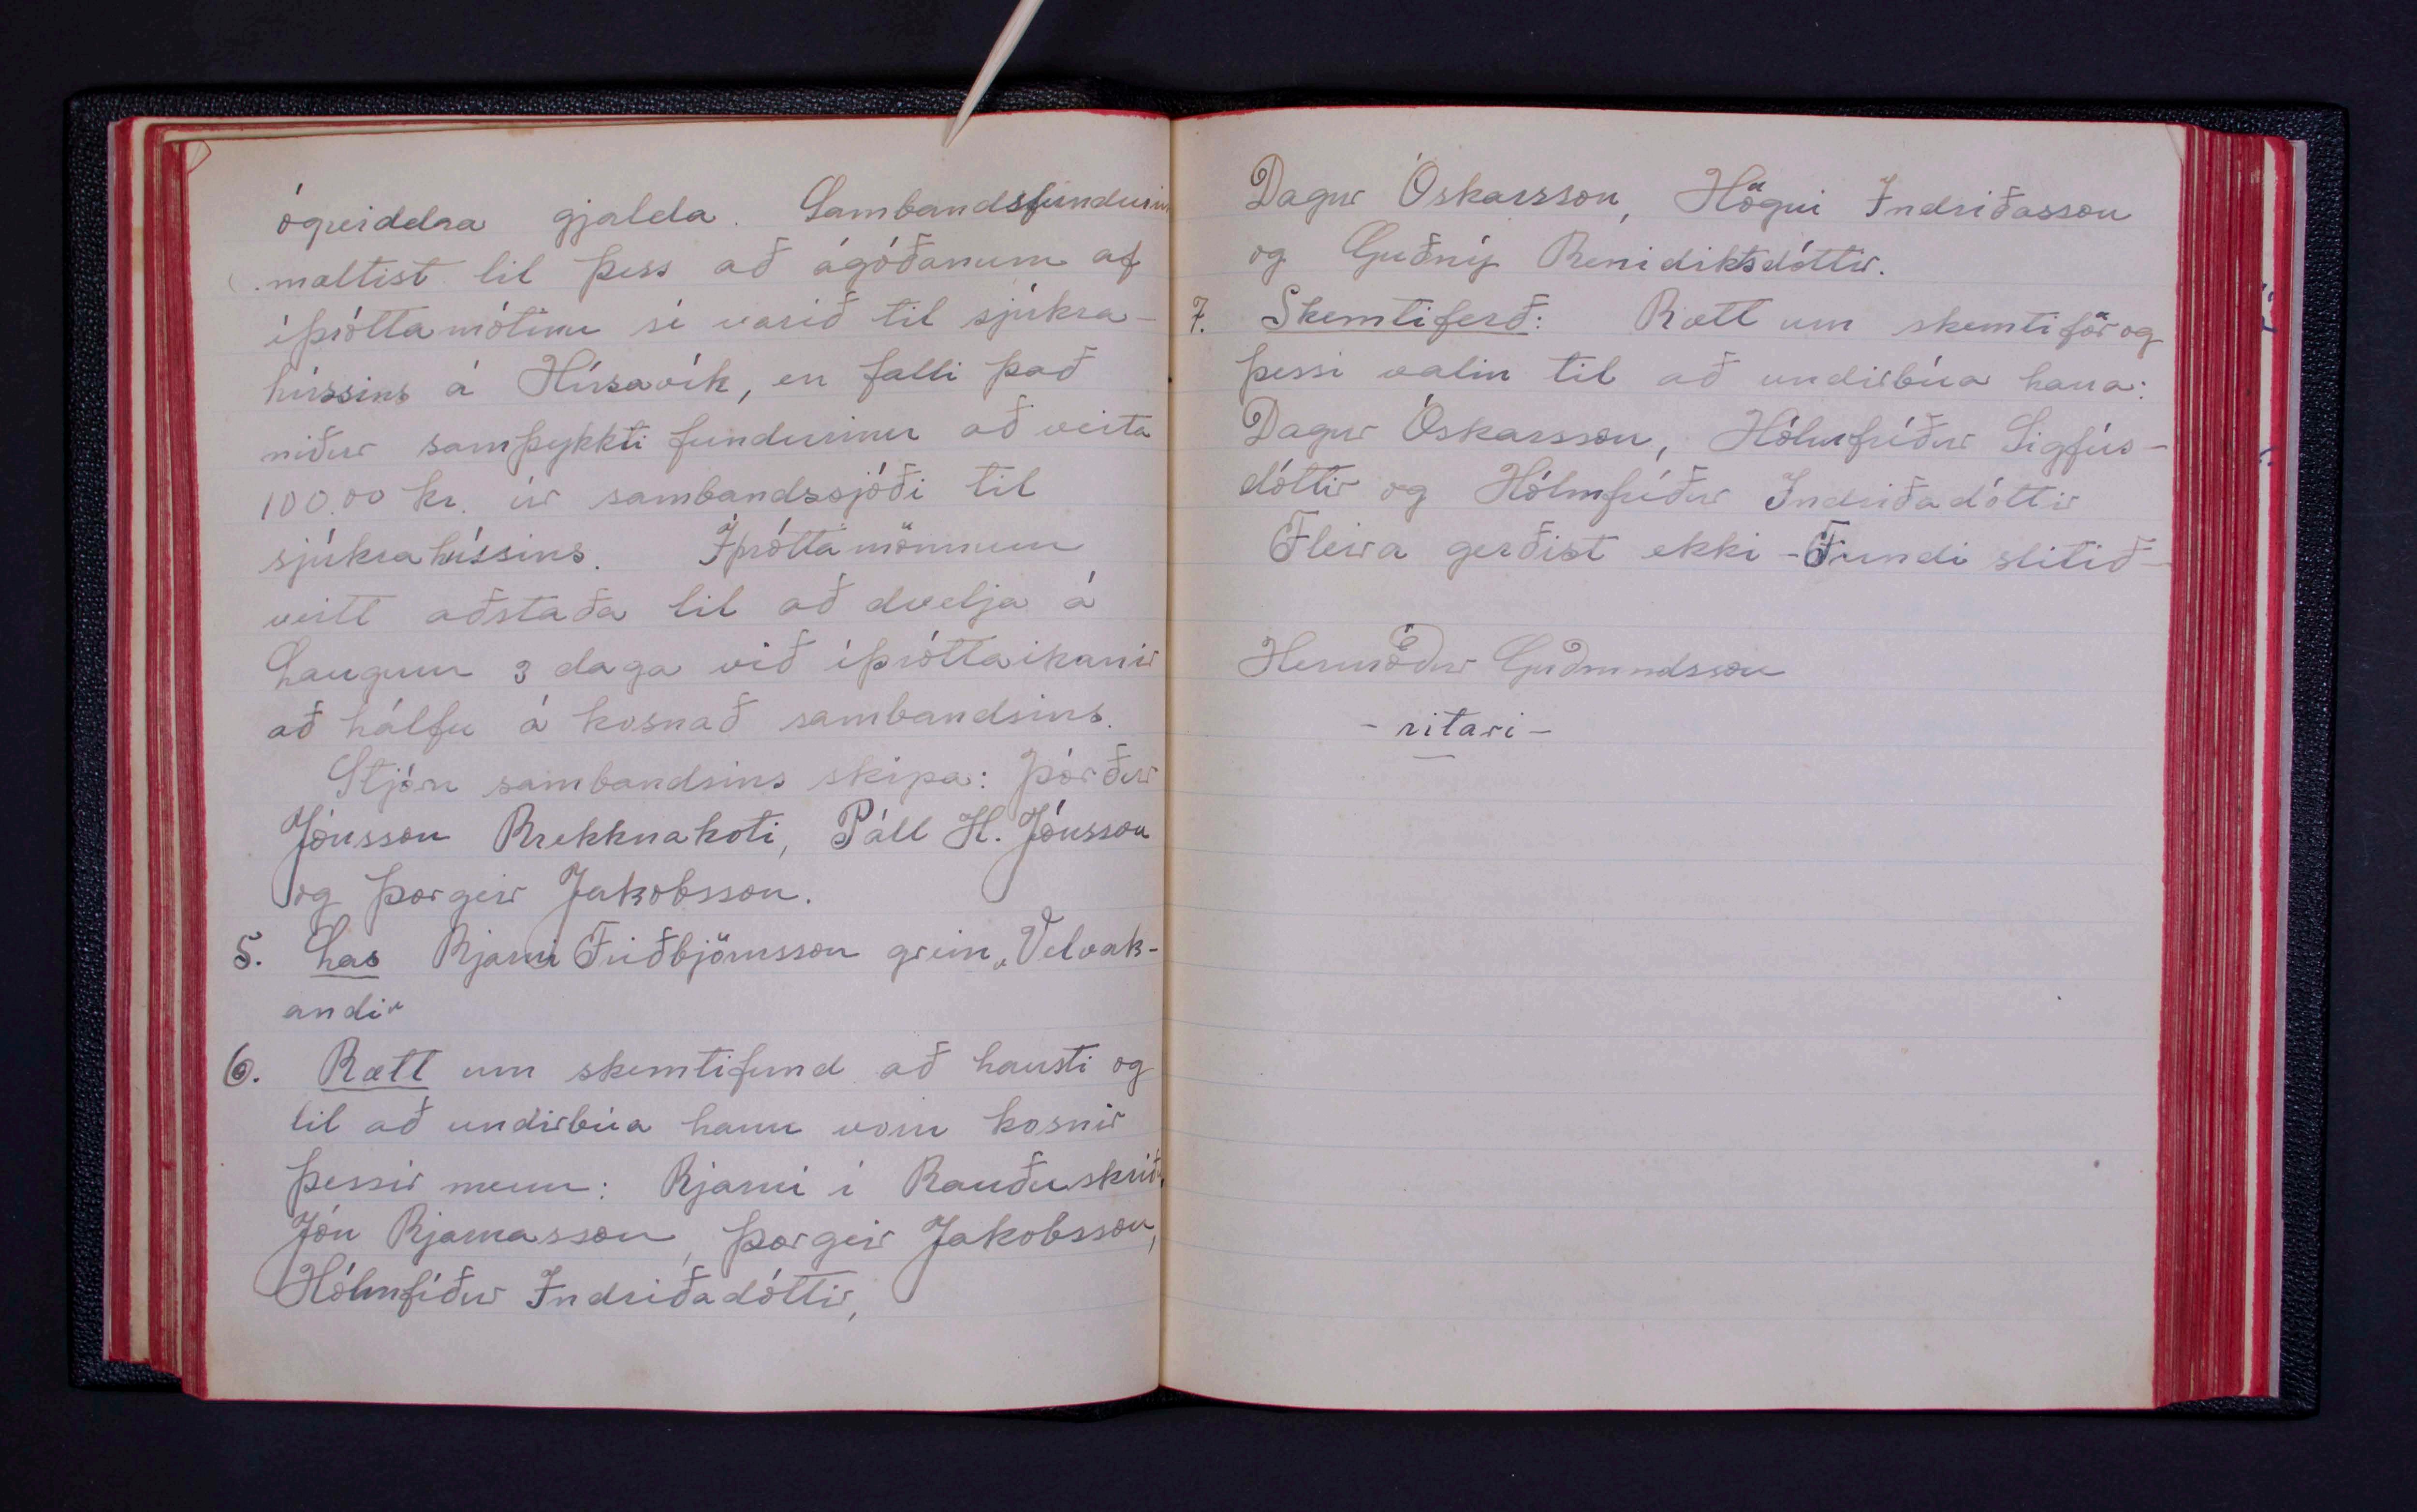 ógreiddra gjalda. Sambandsfundurin
mæltist til þess að ágóðanum af
íþróttamótinu sé varið til sjúkra-
hússins á Húsavík, en falli það
niður samþykkti fundurinn að veita
100.00 kr. úr sambandssjóði til
sjúkrahússins. Íþróttamönnum
veitt aðstaða til að dvelja á
Laugum 3 daga við íþróttaikanir
að hálfu á kosnað sambandsins.
Stjórn sambandsins skipa: Þórður
Jónsson Brekknakoti, Páll H. Jónsson
og Þorgeir Jakobsson.
5. Las Bjarni Friðbjörnsson grein „Velvak-
andi"
6. Rætt um skemtifund að hausti og
til að undirbúa hann voru kosnir
þessir menn: Bjarni í Rauðuskrið,
Jón Bjarnasson, Þorgeir Jakobsson,
Hólmfíður Indriðadóttir,
Dagur Óskarsson, Högni Indriðasson
og Guðný Benidiktsdóttir.
7. Skemtiferð: Rætt um skemtiför og
þessi valin til að undirbúa hana:
Dagur Óskarsson, Hólmfríður Sigfús-
dóttir og Hólmfríður Indriðadóttir
Fleira gerðist ekki - Fundi slitið -
Hermóður Guðmundsson
- ritari -